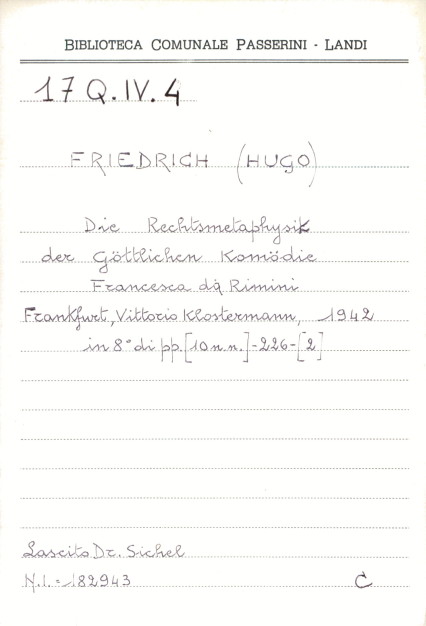 BIBLIOTECA COMUNALE PASSERINI - LANDI
17 Q.IV.4
FRIEDRICH (HUGO)
Die Rechtsmetaphysik
der Göttlichen Komödie
Francesca dà Rimini
Frankfurt, Vittorio Klostermann, 1942
in 8° di pp.[10 n.n.]-226-[2]
Lascito Dr. Sichel
N.I. = 182943 C